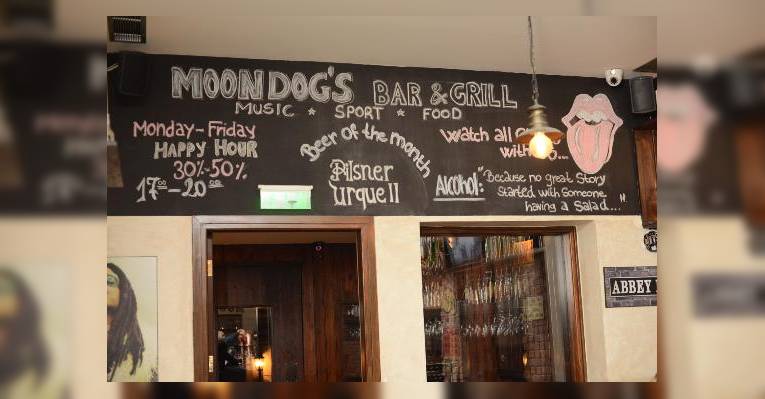 MOONDOG'S BAR & GRILL
MUSIC * SPORT * FOOD
Monday-Friday
HAPPY HOUR
30%-50%
17⁰⁰-20⁰⁰
Beer of the month
Pilsner
Urquell
Watch all
with
Alcohol: "Because no great Story
Started with Someone
having a Salad..."
ABBEY